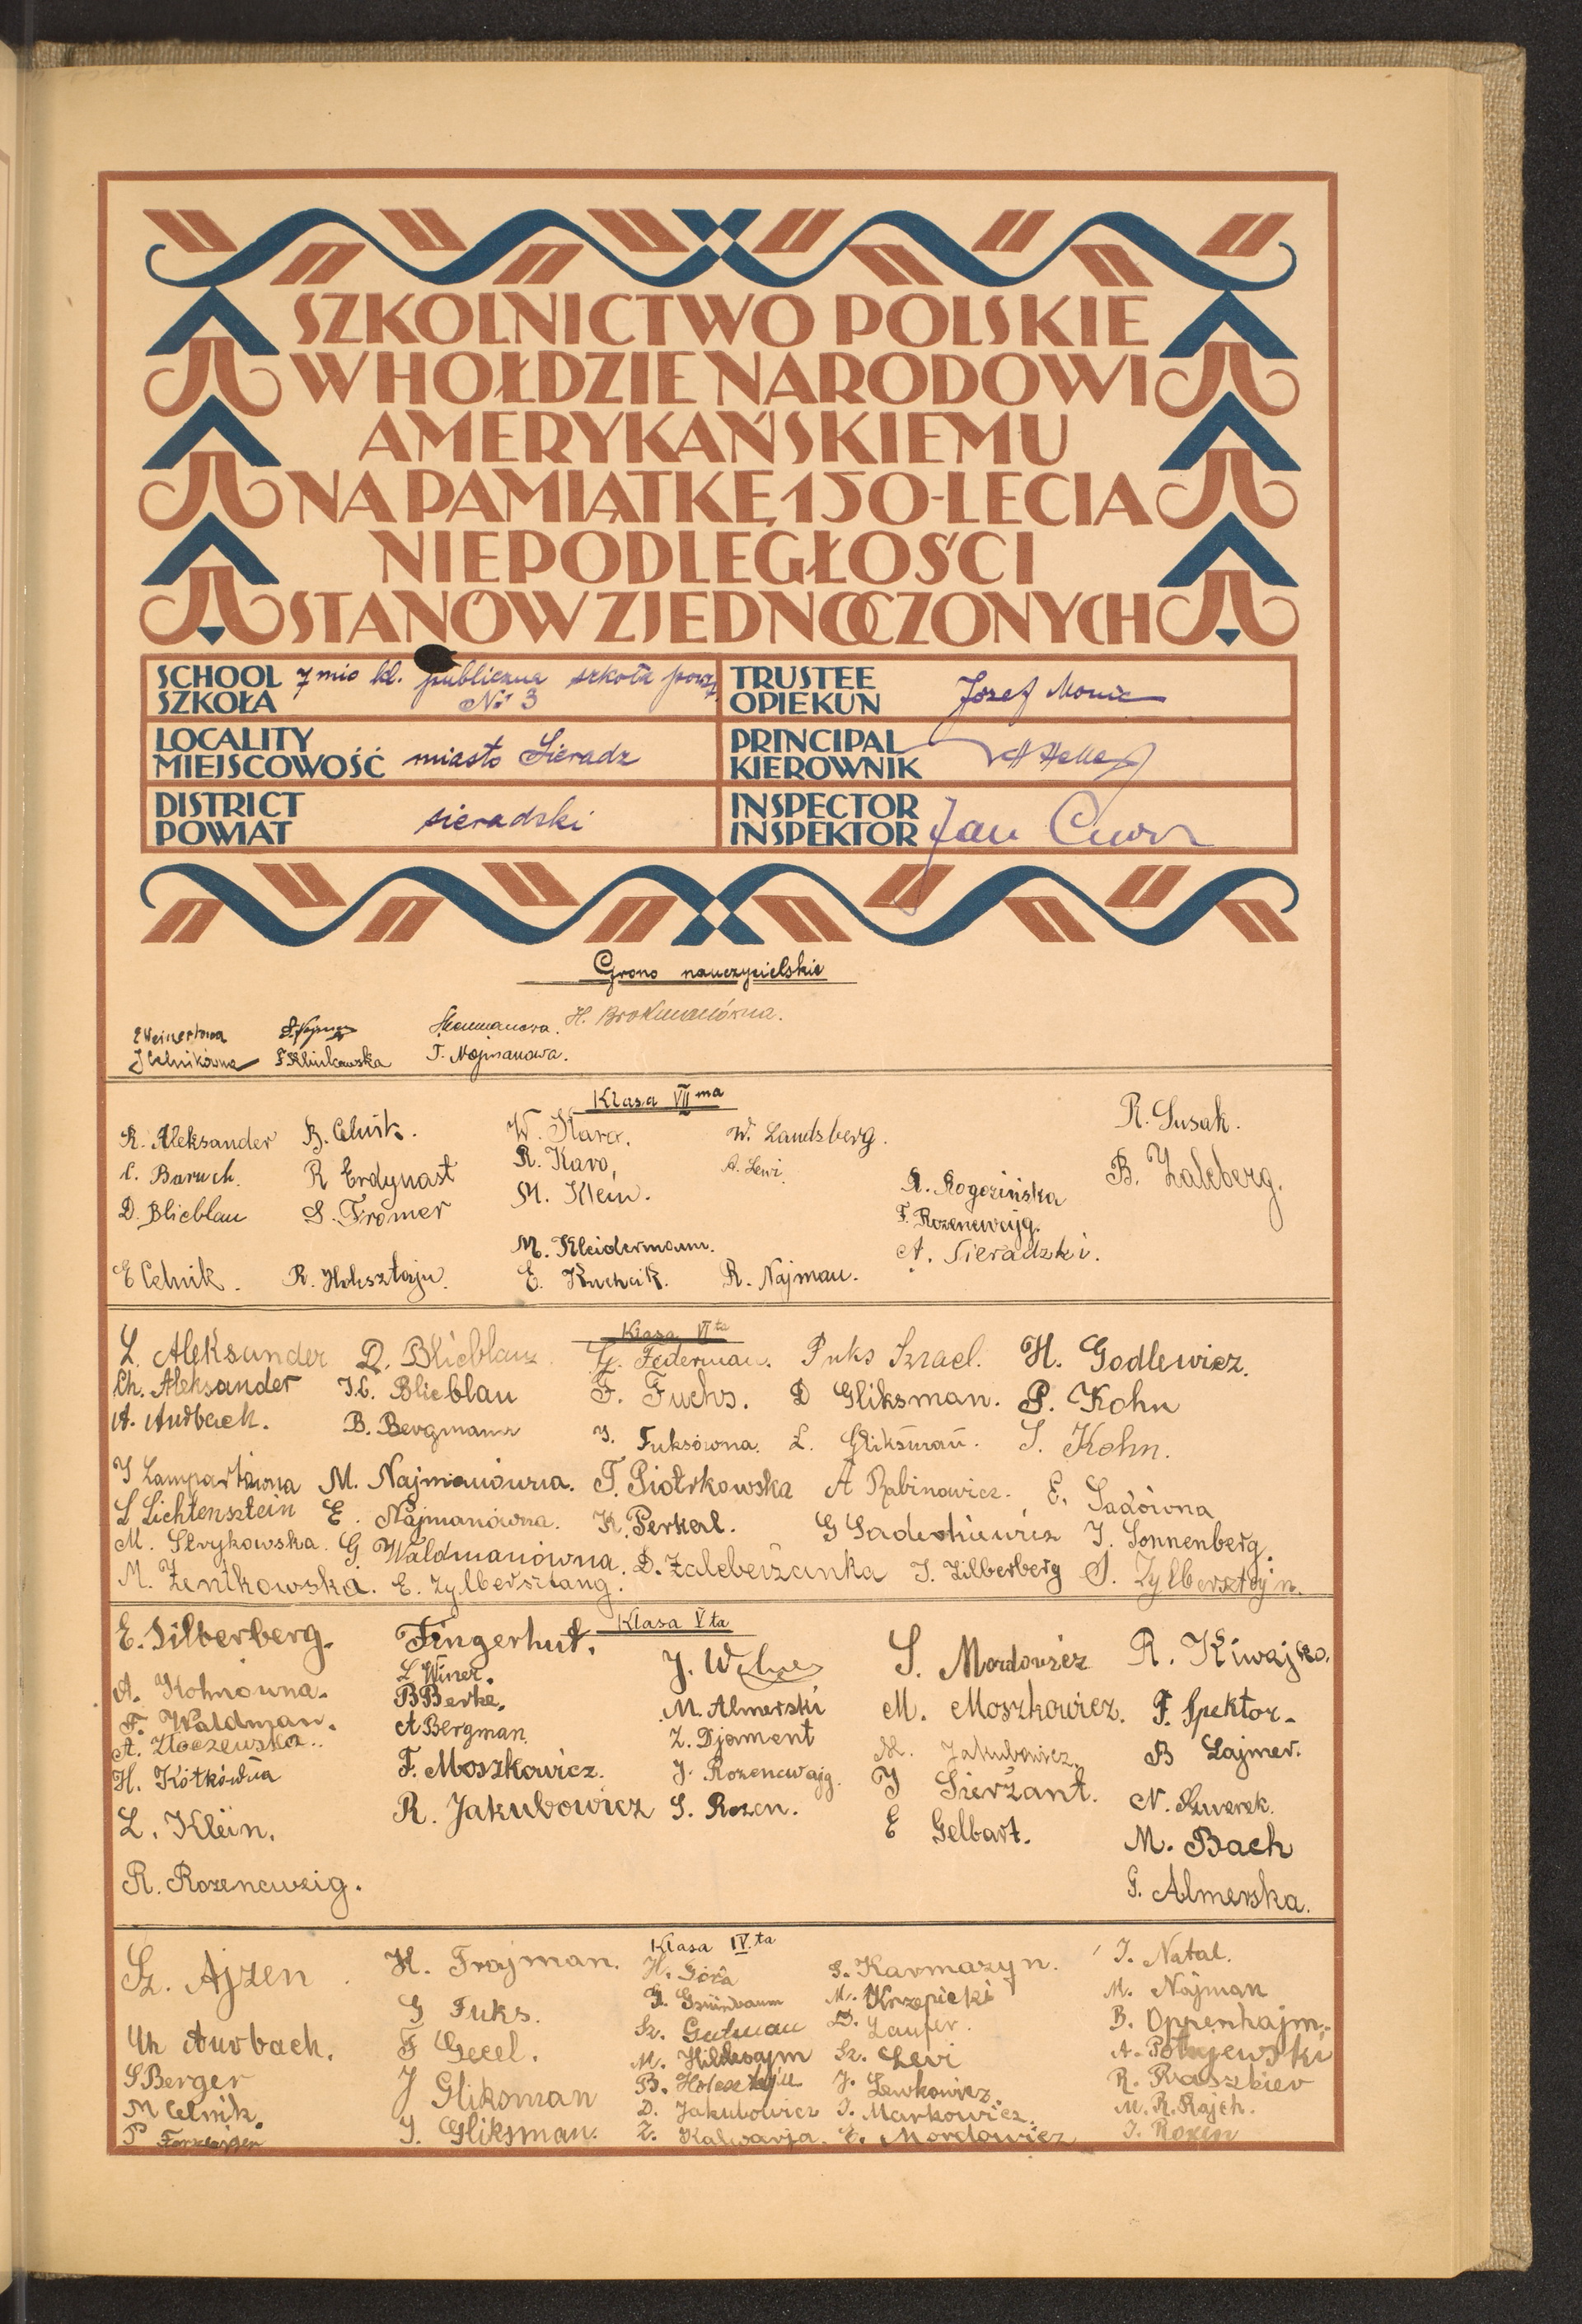 SZKOLNICTWO POLSKIE
W HOŁDZIE NARODOWI
AMERYKAŃSKIEMU
NA PAMIĄTKĘ 150-LECIA
NIEPODLEGŁOŚCI
STANÓW ZJEDNOCZONYCH
SCHOOL
SZKOŁA
7mio kl. publiczna szkoła powsz.
№ 3
TRUSTEE
OPIEKUN
Józef
LOCALITY
MIEJSCOWOŚĆ
miasto Sieradz
PRINCIPAL
KIEROWNIK
DISTRICT
POWIAT
sieradzki
INSPECTOR
INSPEKTOR
Jan
Grono nauczycielskie
E Weinertowa
H. Brokmanówna.
J Celnikówna
T. Najmanowa.
Klasa VII ma
R. Aleksander
B. Celnik.
W. Karo.
W. Landsberg.
R. Susak.
C. Baruch.
R Erdynast
R. Karo,
A. Lewi
R. Rogozińska
B. Zalcberg.
D. Blicblau
S. Fromer
M. Klein.
F. Rozencwajg.
M. Kleidermann.
A. Sieradzki.
E Celnik.
R. Holcsztajn.
E. Kuchcik.
R. Najman.
Klasa VI ta
L. Aleksander
D. Blicblau
G. Federman.
Fuks Izrael.
H. Godlewicz.
Ch. Aleksander
I.C. Blicblau
F. Fuchs.
D Gliksman.
P. Kohn
A. Aurbach.
B. Bergmann
I. Fuksówna.
L. Gliksman.
S. Kohn.
I Lampartówna
M. Najmanówna.
T. Piotrkowska
A Rabinowicz.
E. Sadówna
L Lichtensztein
E. Najmanówna.
K. Perkal.
G
I. Sonnenberg.
M. Strykowska.
G. Waldmanówna.
D. Zalcberżanka
I. Zilberberg
S. Zylbersztejn.
M. Zentkowska.
E. Zylbersztang.
Klasa V ta
E. Silberberg.
Fingerhut.
S. Mordowicz
R. Kiwajko.
A. Kohnówna.
L Winer.
J.
M. Moszkowicz.
F. Spektor.
F. Waldman.
B Berke.
M. Almerski
M. Jakubowicz.
B Lajmer.
A. Złoczewska.
A Bergman.
Z. Djament
I Sierżant.
N. Szwerek.
H. Kotkówna
F. Moszkowicz.
J. Rozencwajg.
E Gelbart.
M. Bach
L. Klein.
R. Jakubowicz
S. Rozen.
G. Almerska.
R. Rozencweig.
Klasa IV.ta
Sz. Ajzen
H. Frajman.
H. Góra
S. Karmazyn.
I. Natal.
G Fuks.
G. Grünbaum
M. Krzepicki
M. Najman
Ch Aurbach.
F Gecel.
Sz. Gutman
D. Laufer.
B. Oppenhajm.
S Berger
J Gliksman
M. Hildesajm
Sz. Lewi
A. Potajewski
M Celnik.
I. Gliksman.
B. Holcsztajn
J. Lewkowicz.
R. Raszkier
D. Jakubowicz
I. Markowicz.
M. R. Rajch.
Z. Kalwarja.
E. Mordowicz
I. Rozen